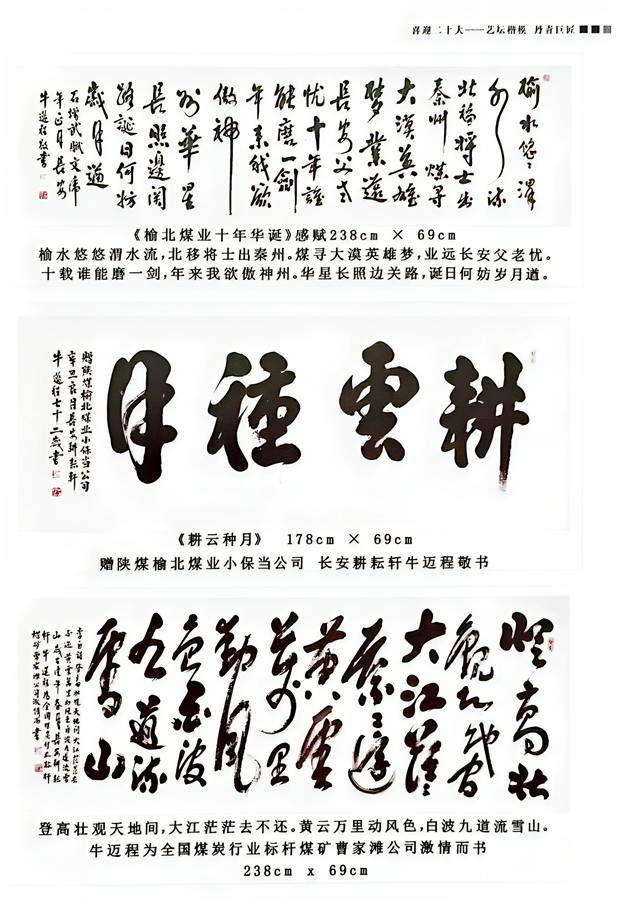 喜迎二十大——艺坛楷模 丹青巨匠
榆水悠悠渭
水流
北移将士出
秦州煤寻
大漠英雄
梦业远
长安父老
忧十年谁
能磨一剑
年来我欲
傲神
州華星
長照邊関
路誕日何妨
歲月遒
年正月長安
牛邁程敬書
《榆北煤业十年华诞》感赋238cm × 69cm
榆水悠悠渭水流,北移将士出秦州。煤寻大漠英雄梦,业远长安父老忧。
十载谁能磨一剑,年来我欲傲神州。华星长照边关路,诞日何妨岁月遒。
耕雲種月
贈陕煤榆北煤业小保当公司
辛丑良月長安耕耘軒
牛邁程七十二歲書
《耕云种月》 178cm × 69cm
赠陕煤榆北煤业小保当公司 长安耕耘轩牛迈程敬书
登高壮
觀天地间
大江茫
茫去不還
黄雲
萬里
動風
色白波
九道流
雪山
登高壮观天地间,大江茫茫去不还。黄云万里动风色,白波九道流雪山。
牛迈程为全国煤炭行业标杆煤矿曹家滩公司激情而书
238cm x 69cm